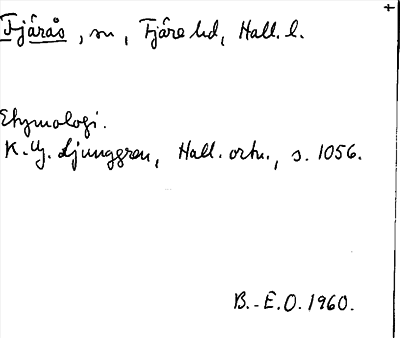 +
Fjärås, sn, Fjäre hd, Hall. l.
Etymologi.
K.G. Ljunggren, Hall. ortn., s. 1056.
B.-E.O. 1960.